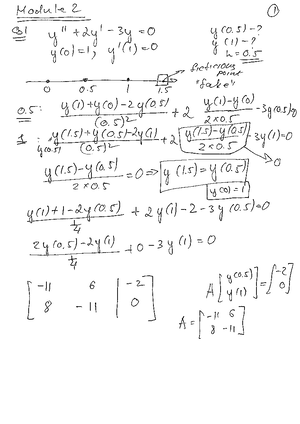 Module 2
①
Q1 y'' + 2y' - 3y = 0
y(0) = 1, y'(1) = 0
y(0.5) - ?
y(1) - ?
h = 0.5
0 0.5 1 1.5
ficticious point
"fake"
0.5: (y(1) + y(0) - 2y(0.5))/(0.5)² + 2 (y(1) - y(0))/(2×0.5) - 3y(0.5) = 0
1: (y(1.5) + y(0.5) - 2y(1))/(0.5)² + 2 (y(1.5) - y(0.5))/(2×0.5) - 3y(1) = 0
y(0.5)
0
(y(1.5) - y(0.5))/(2×0.5) = 0 ⇒ y(1.5) = y(0.5)
y(0) = 1
(y(1) + 1 - 2y(0.5))/(1/4) + 2y(1) - 2 - 3y(0.5) = 0
(2y(0.5) - 2y(1))/(1/4) + 0 - 3y(1) = 0
[-11 6 | -2]
[8 -11 | 0]
A [y(0.5) y(1)] = [-2 0]
A = [-11 6 8 -11]